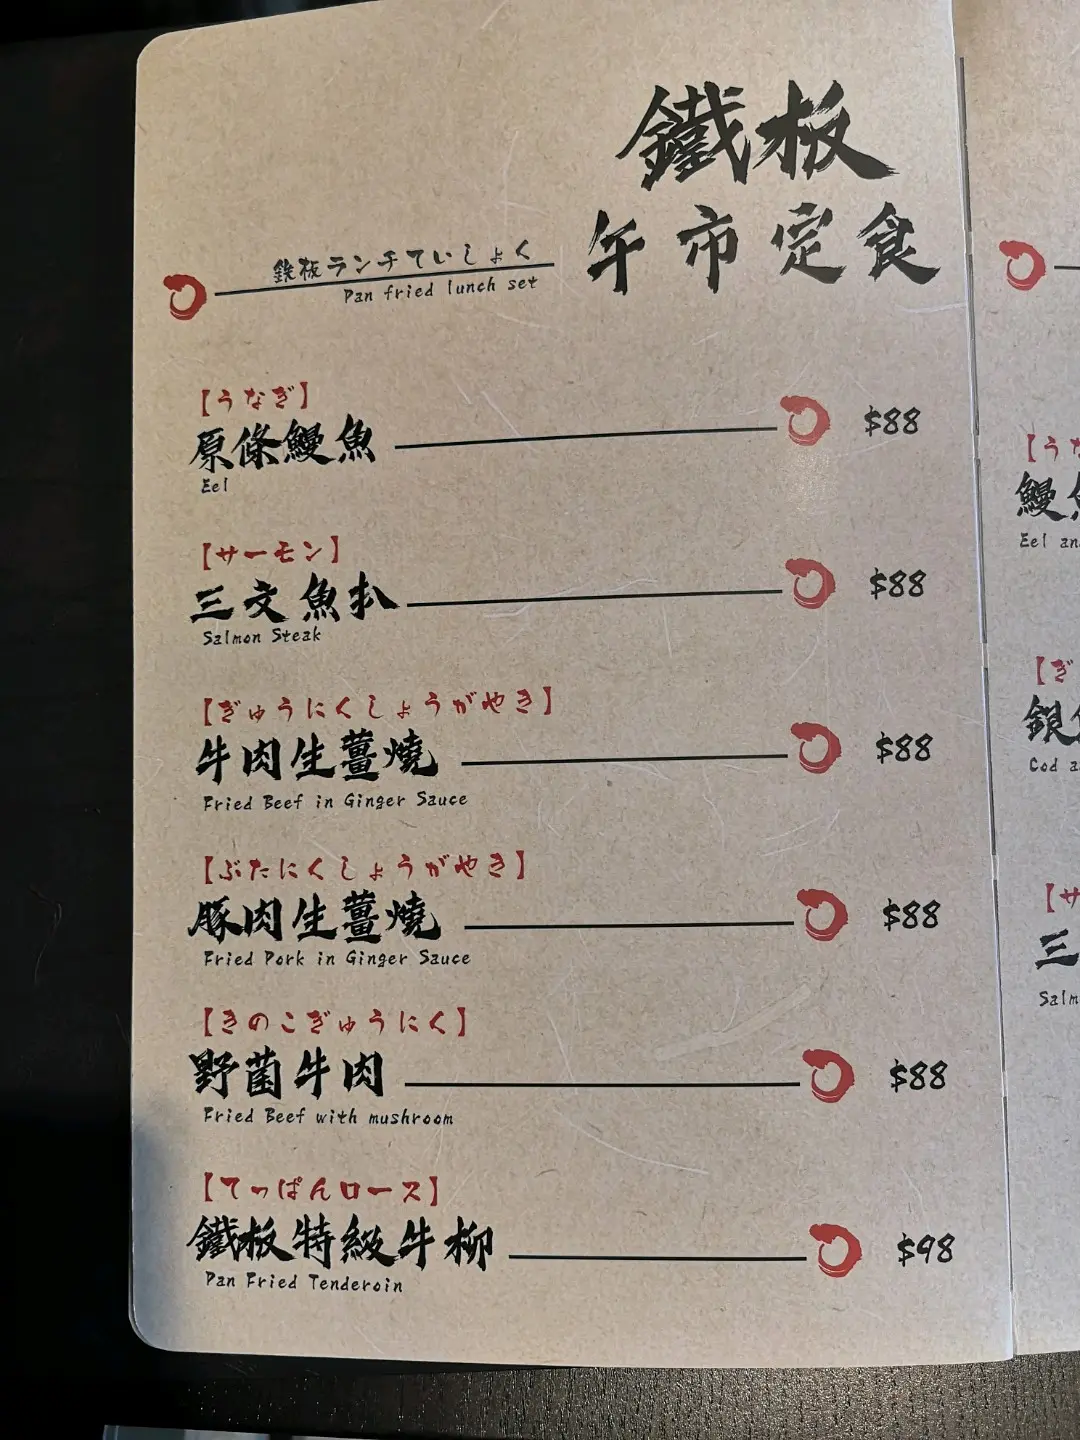 鐵板
午市定食
鉄板ランチていしょく
Pan fried lunch set
【うなぎ】
原條鰻魚
$88
Eel
【サーモン】
三文魚扒
$88
Salmon Steak
【ぎゅうにくしょうがやき】
牛肉生薑燒
$88
Fried Beef in Ginger Sauce
【ぶたにくしょうがやき】
豚肉生薑燒
$88
Fried Pork in Ginger Sauce
【きのこぎゅうにく】
野菌牛肉
$88
Fried Beef with mushroom
【てっぱんロース】
鐵板特級牛柳
$98
Pan Fried Tenderoin
【うな
鰻
Eel an
【ぎ
銀
Cod a
【サ
三
Salm